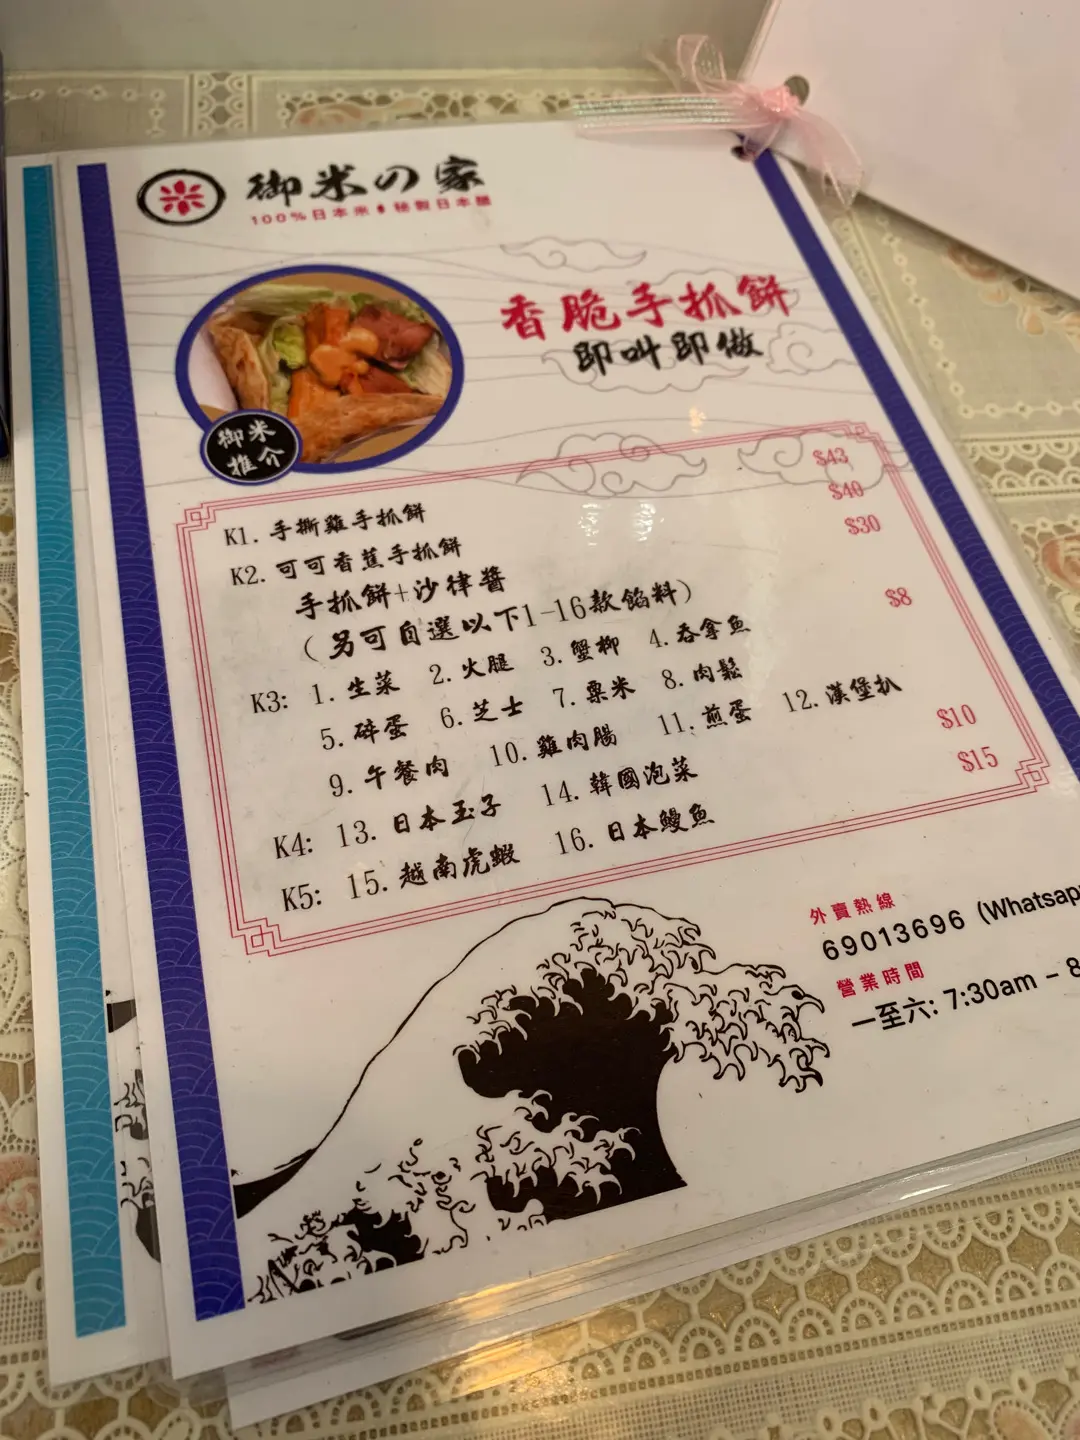 御米の家
100%日本米♦秘製日本醋
香脆手抓餅
即叫即做
御米
推介
K1. 手撕雞手抓餅 $43
K2. 可可香蕉手抓餅 $40
手抓餅+沙律醬 $30
(另可自選以下1-16款餡料)
K3: 1. 生菜 2. 火腿 3. 蟹柳 4. 吞拿魚 $8
5. 碎蛋 6. 芝士 7. 粟米 8. 肉鬆
9. 午餐肉 10. 雞肉腸 11. 煎蛋 12. 漢堡扒
K4: 13. 日本玉子 14. 韓國泡菜 $10
K5: 15. 越南虎蝦 16. 日本鰻魚 $15
外賣熱線
69013696 (Whatsap
營業時間
一至六: 7:30am - 8